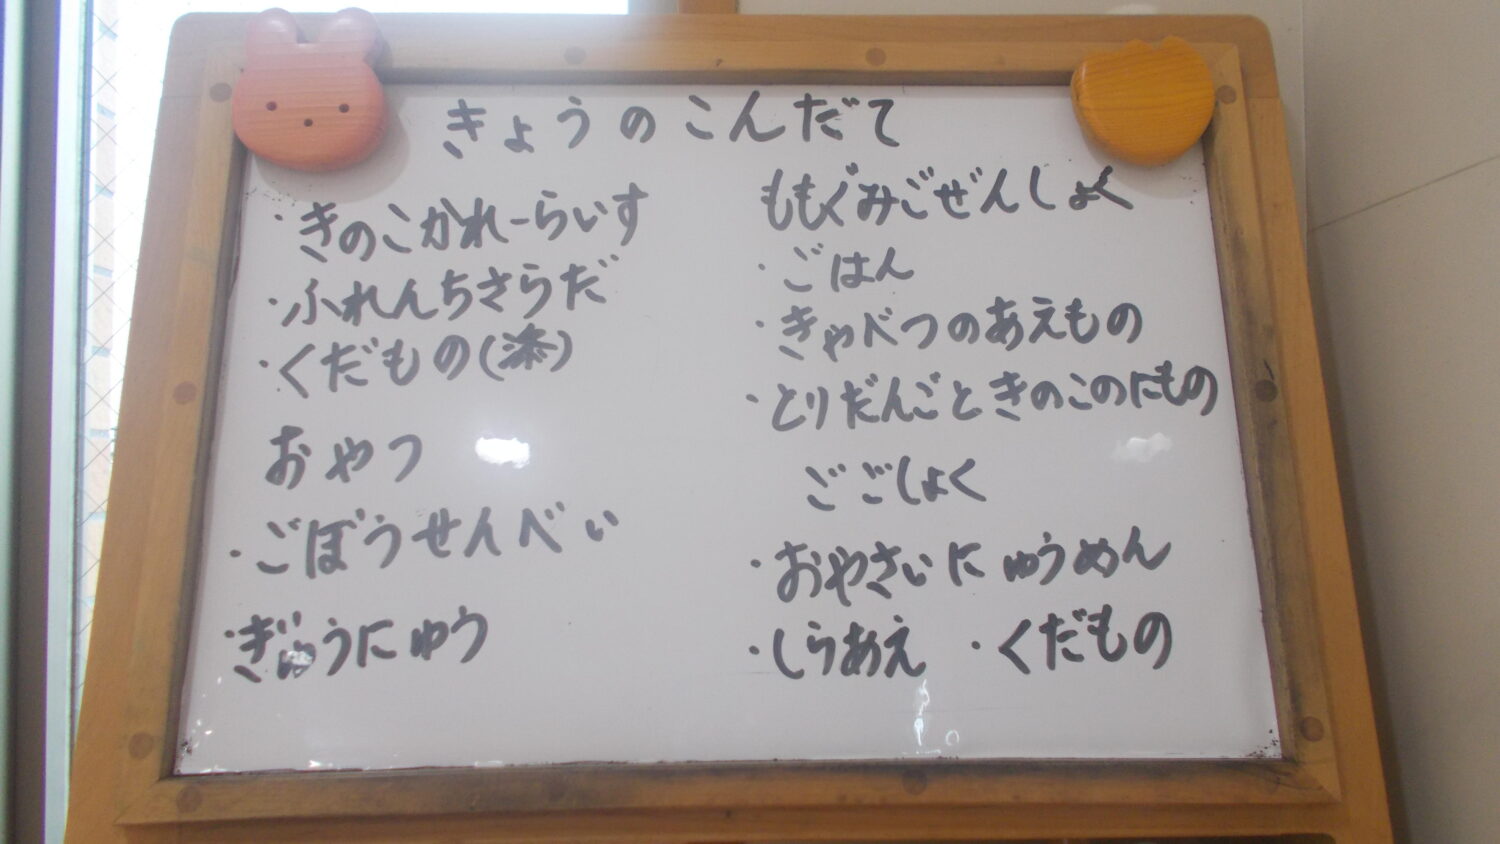 きょうのこんだて
・きのこかれーらいす
・ふれんちさらだ
・くだもの()
おやつ
・ごぼうせんべい
・ぎゅうにゅう
ももぐみごぜんしょく
・ごはん
・きゃべつのあえもの
・とりだんごときのこのにもの
ごごしょく
・おやさいにゅうめん
・しらあえ ・くだもの